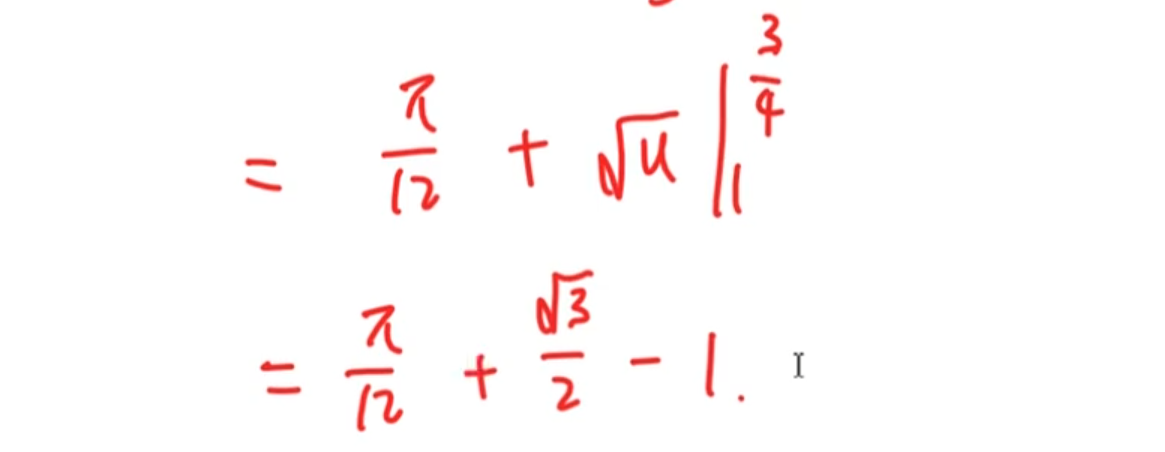 = π/12 + √u |₁^(3/4)
= π/12 + √3/2 - 1.